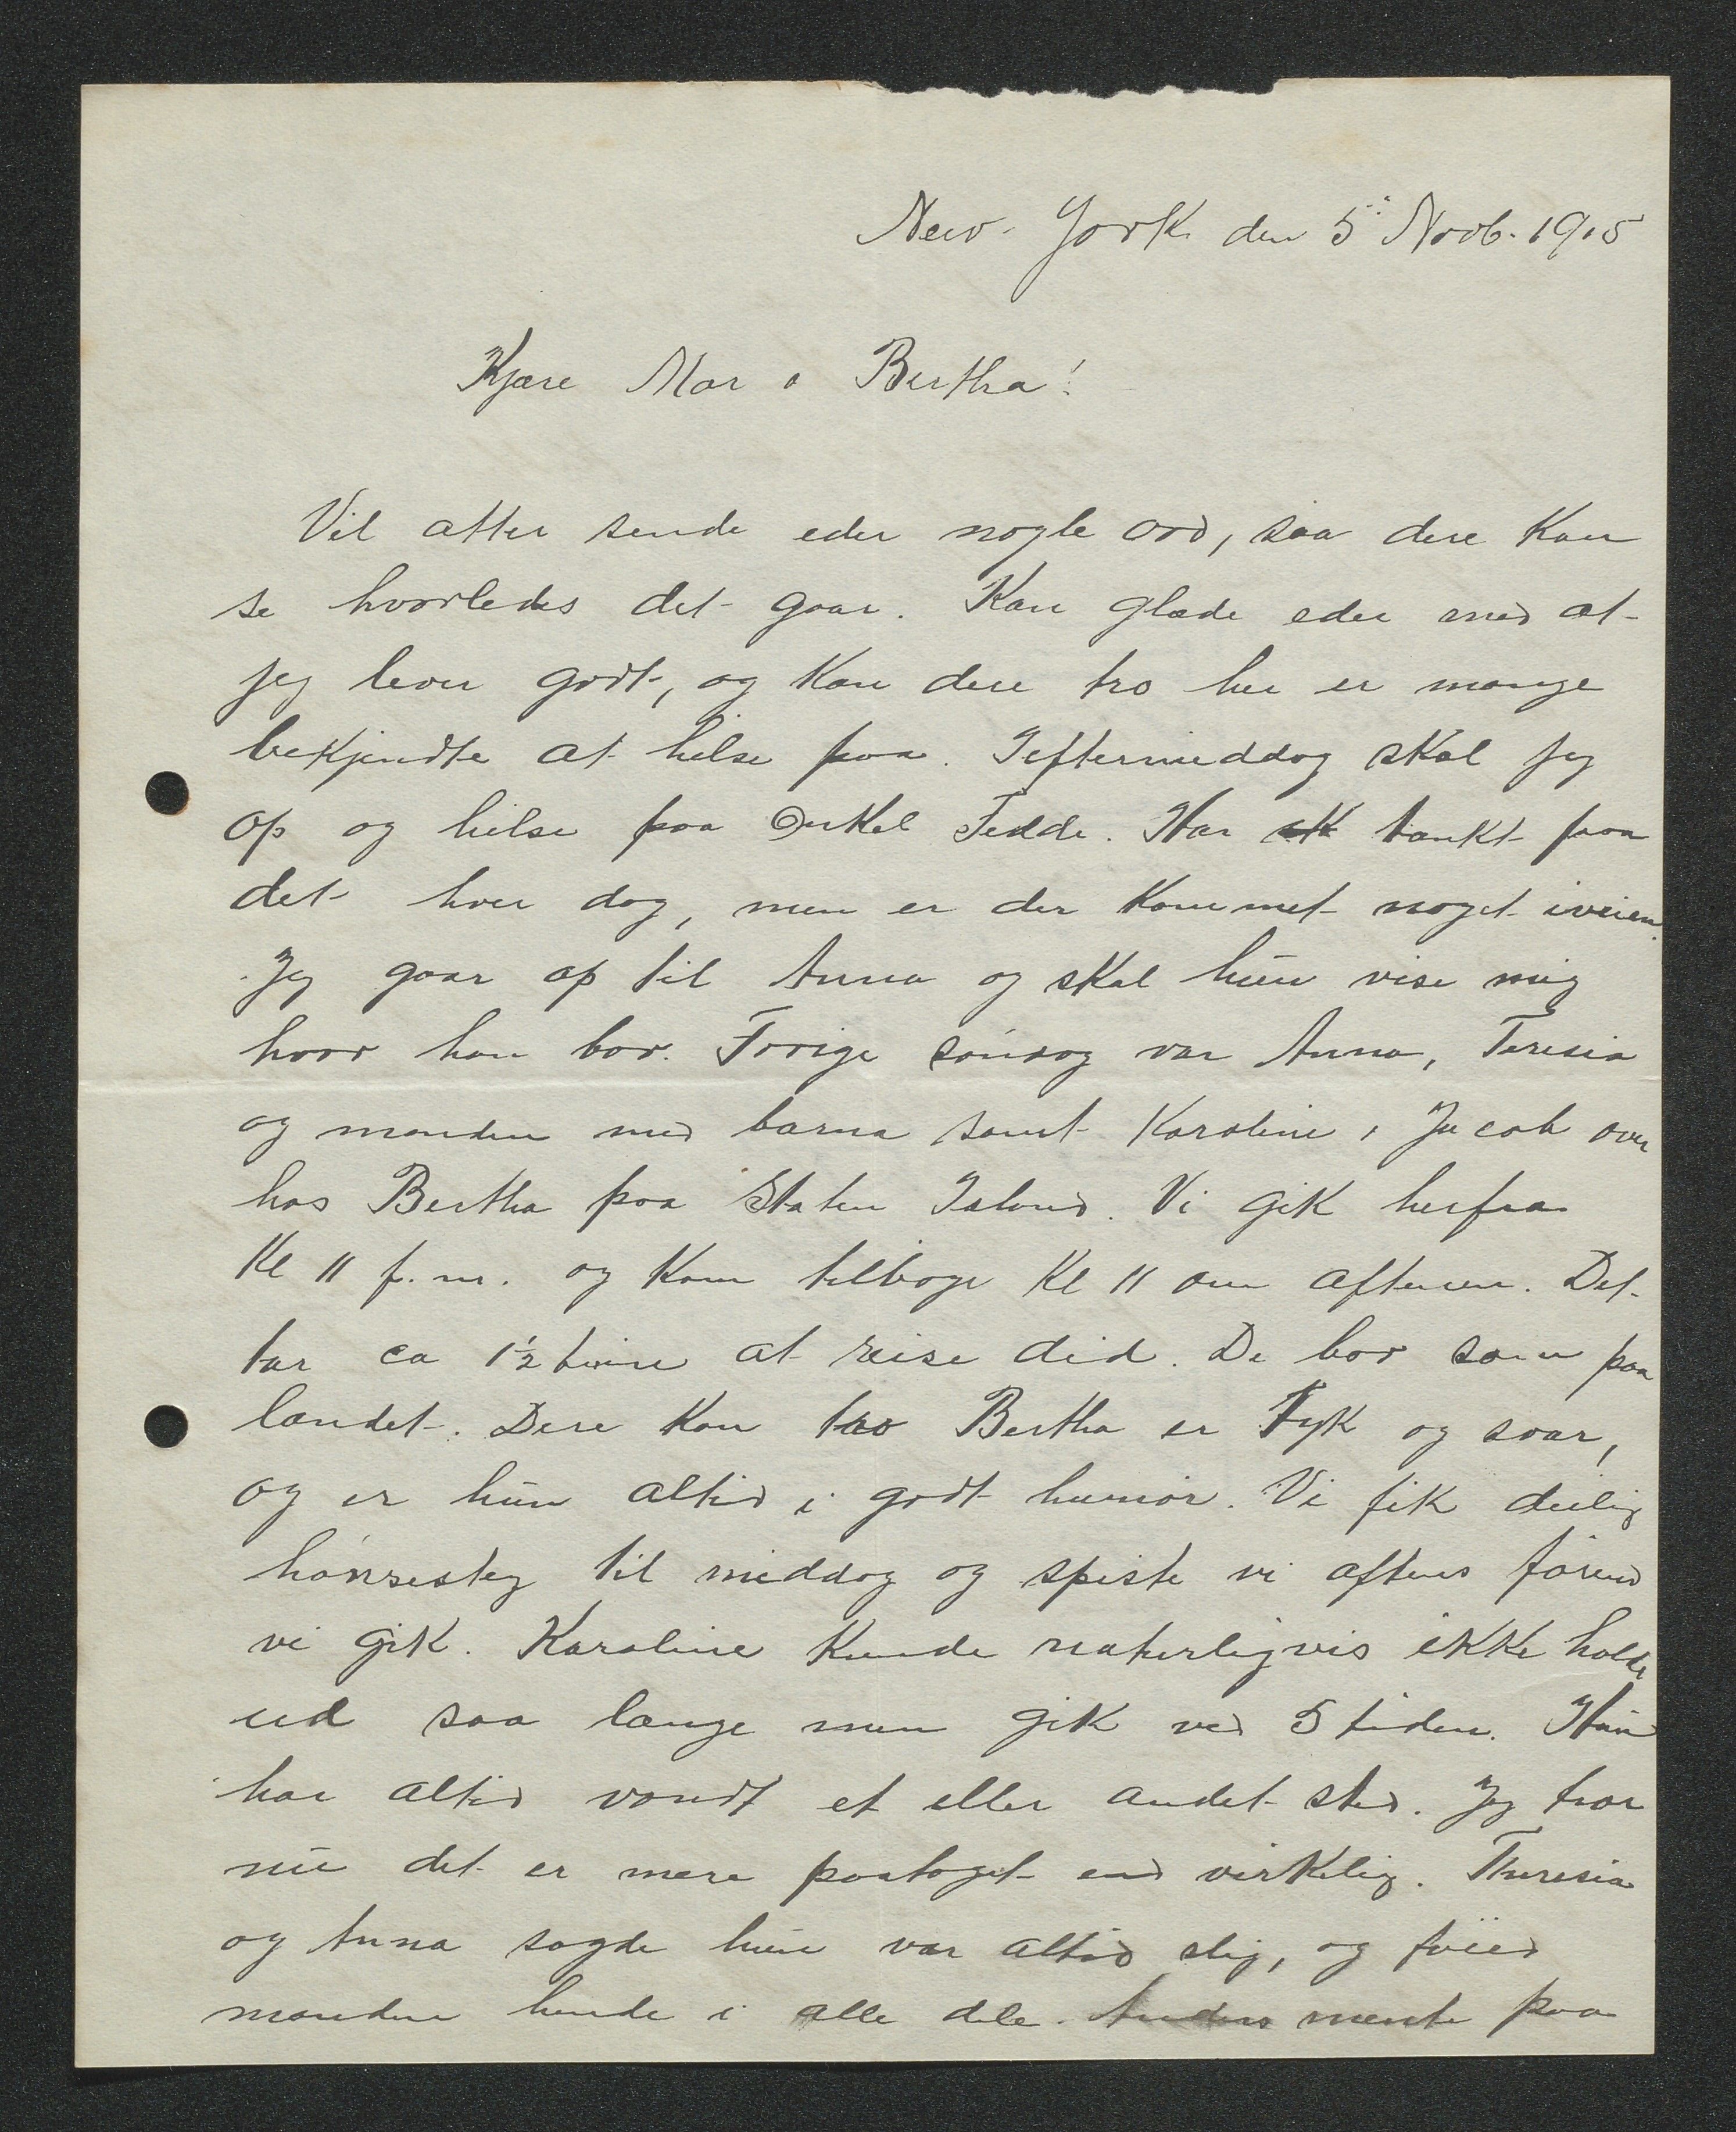 New-York den 5' Novb. 1915
Kjære Mor o Bertha!
Vil atter sende eder nogle ord, saa dere kan
se hvorledes det gaar. Kan glæde eder med at
jeg lever godt, og kan dere tro her er mange
bekjendte at hilse paa. Ieftermiddag skal jeg
op og hilse paa Onkel Tedde. Har tænkt paa
det hver dag, men er der kommet noget iveien.
Jeg gaar op til Anna og skal hun vise mig
hvor han bor. Forige söndag var Anna, Teresia
og manden med barna samt Karoline o Jacob over
hos Bertha paa Staten Island. Vi gik herfra
Kl 11 f.m. og kom tilbage Kl 11 om aftenen. Det
tar ca 1½ time at reise did. De bor som paa
landet. Dere kan tro Bertha er Tyk og svær,
og er hun altid i godt humör. Vi fik deilig
hönsesteg til middag og spiste vi aftens förend
vi gik. Karoline kunde naturligvis ikke holde
ud saa længe men gik ved 5 tiden. Hun
har altid vondt et eller andet sted. Jeg tror
nu det er mere paataget end virkelig. Theresia
og Anna sagde hun var altid slig, og föied
manden hende i alle dele. Anders mente paa